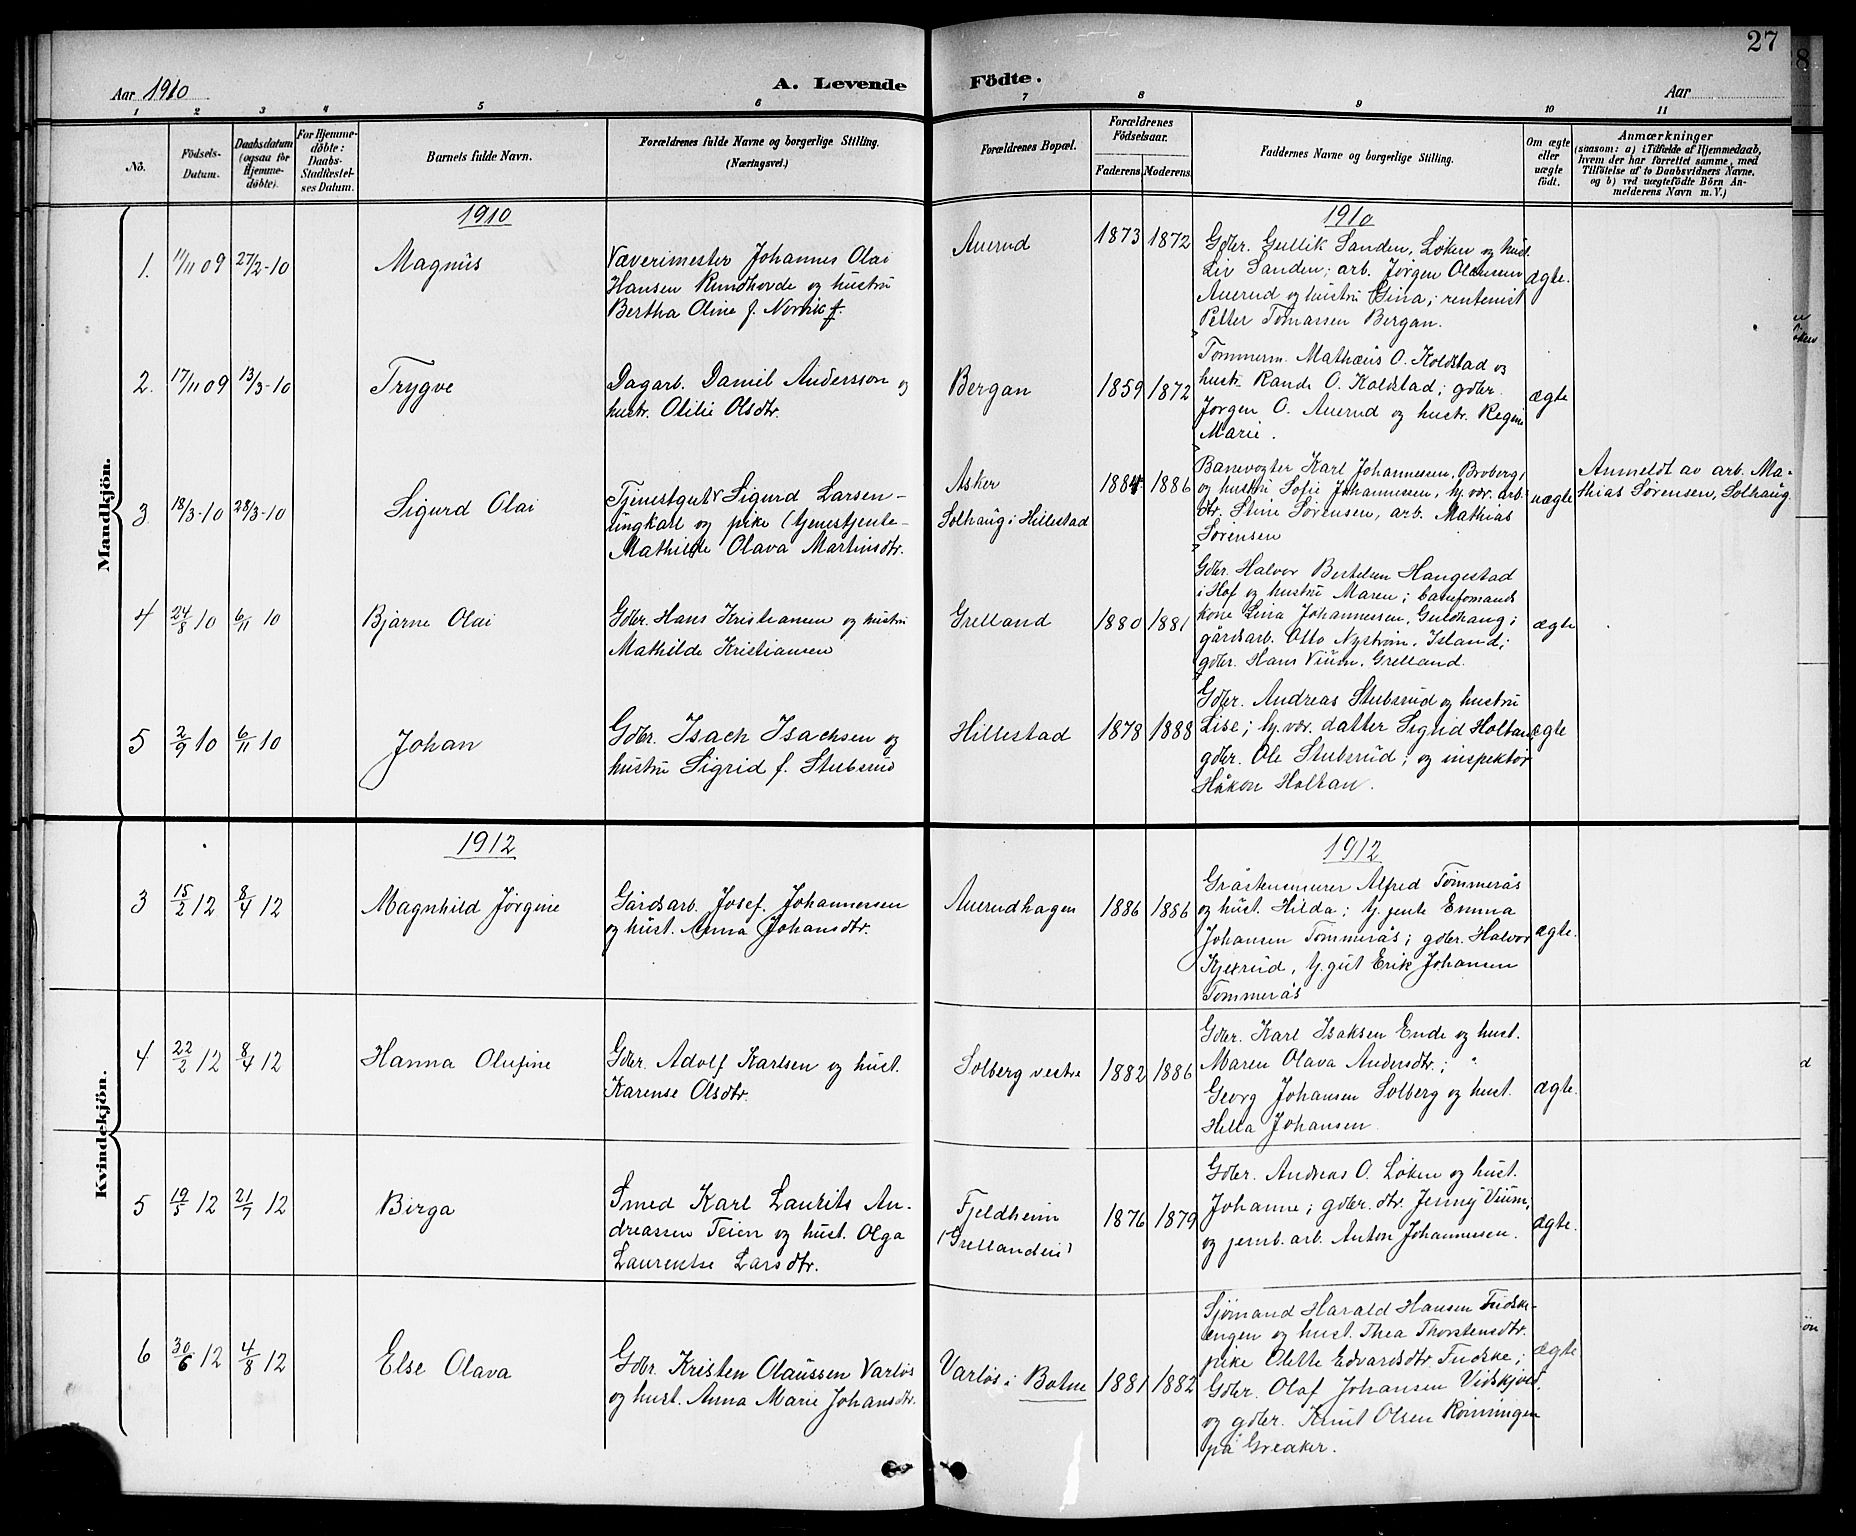 27
Aar 1910
A. Levende Födte.
Aar
1 2 3 4 5 6 7 8 9 10 11
No.
Födsels-Datum.
Daabsdatum (ogsaa for Hjemmedöbte).
For Hjemmedöbte: Daabs-Stadfæstelses Datum.
Barnets fulde Navn.
Forældrenes fulde Navne og borgerlige Stilling. (Næringsvei.)
Forældrenes Bopæl.
Forældrenes Födselsaar.
Faderens Moderens
Faddernes Navne og borgerlige Stilling.
Om ægte eller uægte födt.
Anmærkninger
(saasom: a) i Tilfælde af Hjemmedaab, hvem der har forrettet samme, med Tilföielse af to Daabsvidners Navne, og b) ved uægtefödte Börn Anmelderens Navn m. V.)
Mandkjön.
1910
1910
1. 11/11 09 27/2-10
Magnus
Væverimester Johannes Olai
Hansen Rundhovde og hustru
Bertha Oline f. Norvik
Auerud
1873 1872
Gdbr. Gullik Sanden, Løken og hust.
Liv Sanden; arb. Jørgen Olausen
Auerud og hustru Gina; rentenist
Petter Tomassen Bergan.
ægte.
2. 17/11 09 13/3-10
Trygve
Dagarb. Daniel Andersson og
hustr. Otilie Olsdtr.
Bergan
1859 1872
Tømmerm. Mathæus O. Koldstad og
hustr. Rande O. Koldstad; gdbr.
Jørgen O. Auerud og hustr. Regine
Marie.
ægte
3 18/3-10 28/3-10
Sigurd Olai
Tjenestgut Sigurd Larsen -
ungkarl og pike (tjenestjente -
Mathilde Olava Martinsdtr.
Asker
Solhaug i Hillestad
1884 1886
Banevogter Karl Johannessen, Broberg,
og hustru Sofie Johannessen, hj.vær. arb.
dtr. Stine Sørensen, arb. Mathias
Sørensen
uægte
Anmeldt av arb. Ma-
thias Sørensen, Solhaug.
4 24/8 10 6/11 10
Bjarne Olai
Gdbr. Hans Kristiansen og hustru
Mathilde Kristiansen
Grelland
1880 1881
Gdbr. Halvor Bertelsen Hangestad
i Hof og hustru Maren; baneformands
kone Lina Johannessen, Guldhaug;
gårdsarb. Otto Nystrøm, Island;
gdbr. Hans Vium, Grelland.
ægte
5 2/9 10 6/11 10
Johan
Gdbr. Isach Isachsen og
hustru Sigrid f. Stubsrud
Hillestad
1878 1888
Gdbr. Andreas Stubsrud og hustru
Lise; hj.vær. datter Sigrid Holtan
gdbr. Ole Stubsrud; og inspektør
Håkon Holtan.
ægte
Kvindekjön.
1912
1912
3 15/2 12 8/4 12
Magnhild Jørgine
Gårdsarb. Josef Johannessen
og hust. Anna Johansdtr.
Auerudhagen
1886 1886
Gråstensmurer Alfred Tømmerås
og hust. Hilda; tj. jente Emma
Johansen Tømmerås; gdbr. Halvor
Kjexrud, tj. gut Erik Johansen
Tømmerås
ægte.
4 22/2 12 8/4 12
Hanna Olufine
Gdbr. Adolf Karlsen og hust.
Karense Olsdtr.
Solberg vestre
1882 1886
Gdbr. Karl Isaksen Ende og hust.
Maren Olava Andersdtr.;
Georg Johansen Solberg og hust.
Hilda Johansen.
ægte.
5 19/5 12 21/7 12
Birga
Smed Karl Laurits An-
dreassen Teien og hust. Olga
Laurentse Larsdtr.
Fjeldheim
(Grellandeie)
1876 1879
Gdbr. Andreas O. Løken og hust.
Johanne; gdbr. dtr. Jenny Vium,
og jernb. arb. Anton Johannessen.
ægte.
6 30/6 12 4/8 12
Else Olava
Gdbr. Kristen Olaussen Varløs
og hust. Anna Marie Johansdtr.
Varløs i Botne
1881 1882
Sjømand Harald Hansen Fudske-
engen og hust. Thea Thorstensdtr.
pike Olette Edvardsdtr. Fudske;
Gdbr. Olaf Johansen Vidskjold,
og gdbr. Knut Olsen Rønningen
på Greaker.
ægte